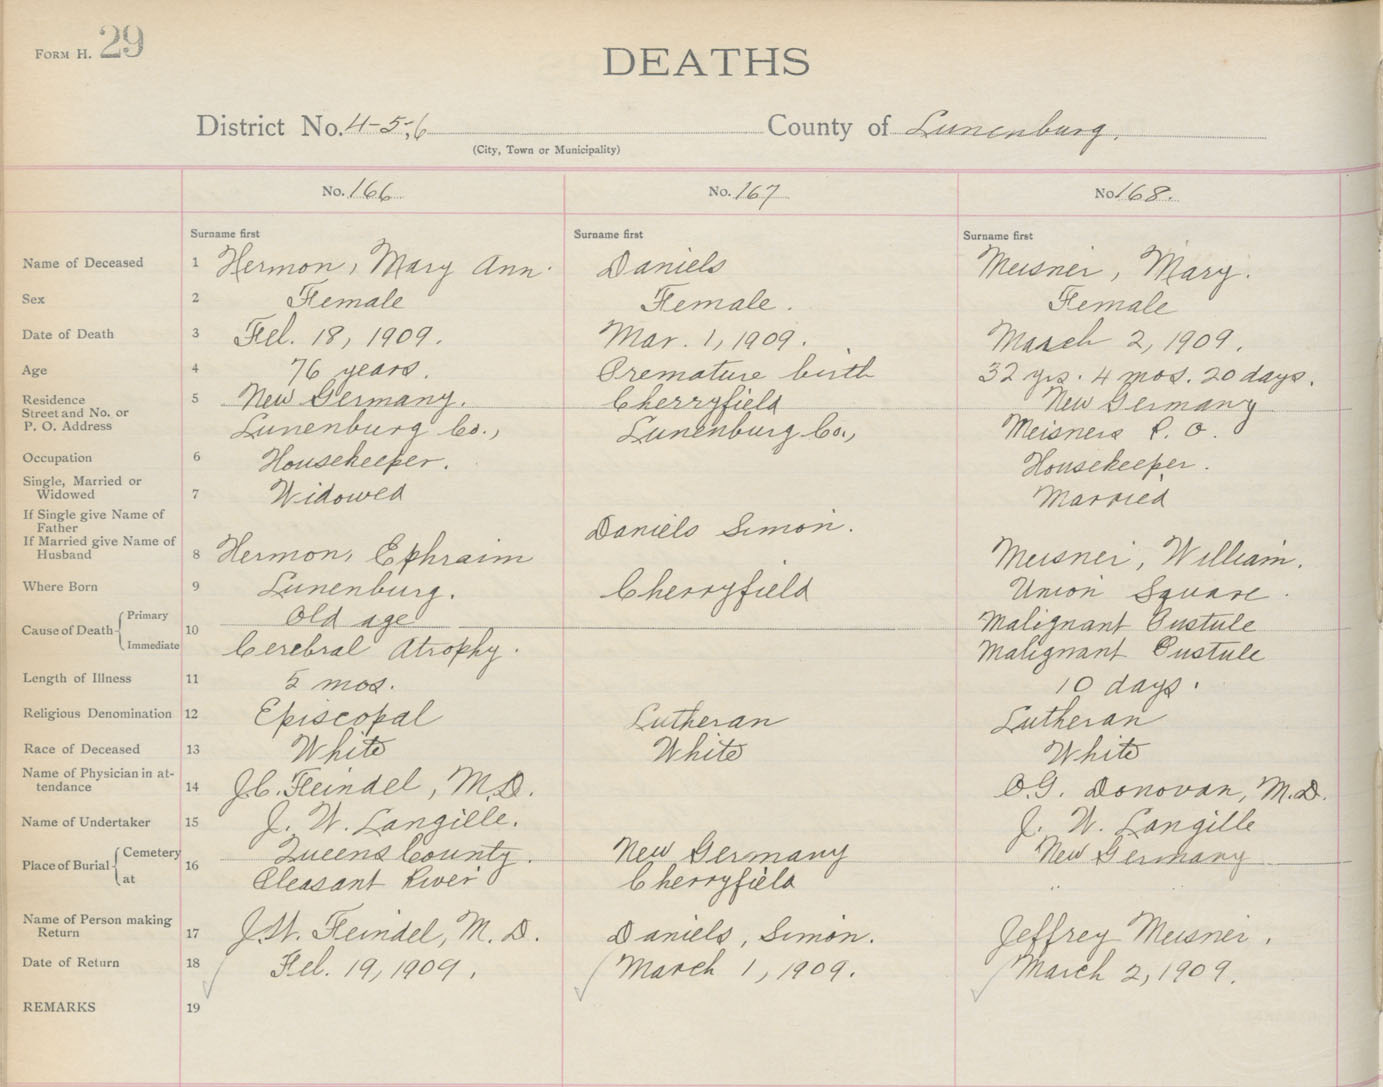 FORM H. 29
DEATHS
District No. 4-5-6 County of Lunenburg.
(City, Town or Municipality)
No. 166 No. 167 No. 168.
Surname first Surname first Surname first
Name of Deceased 1 Hermon, Mary Ann. Daniels Meisner, Mary.
Sex 2 Female Female. Female
Date of Death 3 Feb. 18, 1909. Mar. 1, 1909. March 2, 1909.
Age 4 76 years. Premature birth 32 yrs. 4 mos. 20 days.
Residence 5 New Germany. Cherryfield New Germany
Street and No. or
P. O. Address Lunenburg Co., Lunenburg Co., Meisners P. O.
Occupation 6 Housekeeper. Housekeeper.
Single, Married or
Widowed 7 Widowed Married
If Single give Name of
Father Daniels Simon.
If Married give Name of
Husband 8 Hermon, Ephraim Meisner, William.
Where Born 9 Lunenburg. Cherryfield Union Square.
Cause of Death 10
Primary Old age Malignant Pustule
Immediate Cerebral Atrophy. Malignant Pustule
Length of Illness 11 5 mos. 10 days.
Religious Denomination 12 Episcopal Lutheran Lutheran
Race of Deceased 13 White White White
Name of Physician in at-
tendance 14 J.C. Feindel, M.D. O.G. Donovan, M.D.
Name of Undertaker 15 J. W. Langille. J. W. Langille
Place of Burial 16
Cemetery Queens County. New Germany New Germany
at Pleasant River Cherryfield " "
Name of Person making
Return 17 J.W. Feindel, M. D. Daniels, Simon. Jeffrey Meisner.
Date of Return 18 Feb. 19, 1909. March 1, 1909. March 2, 1909.
REMARKS 19